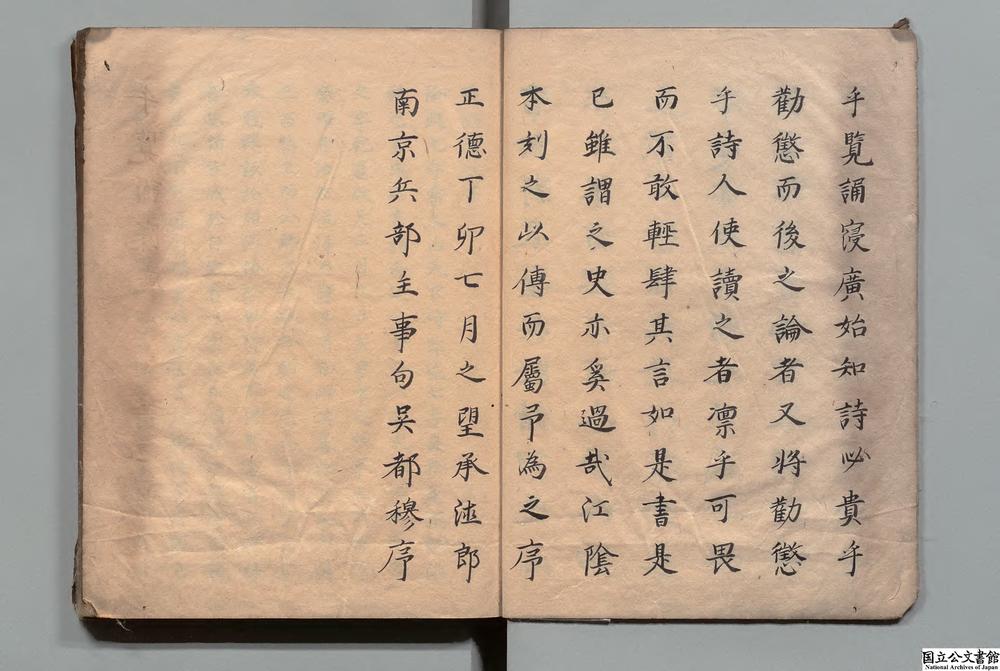 乎覽誦寖廣始知詩必貴乎
勸懲而後之論者又將勸懲
乎詩人使讀之者凛乎可畏
而不敢輕肆其言如是書是
已雖謂之史亦奚過哉江陰
本刻之以傳而屬予為之序
正德丁卯七月之望承德郎
南京兵部主事句吳都穆序
国立公文書館
National Archives of Japan